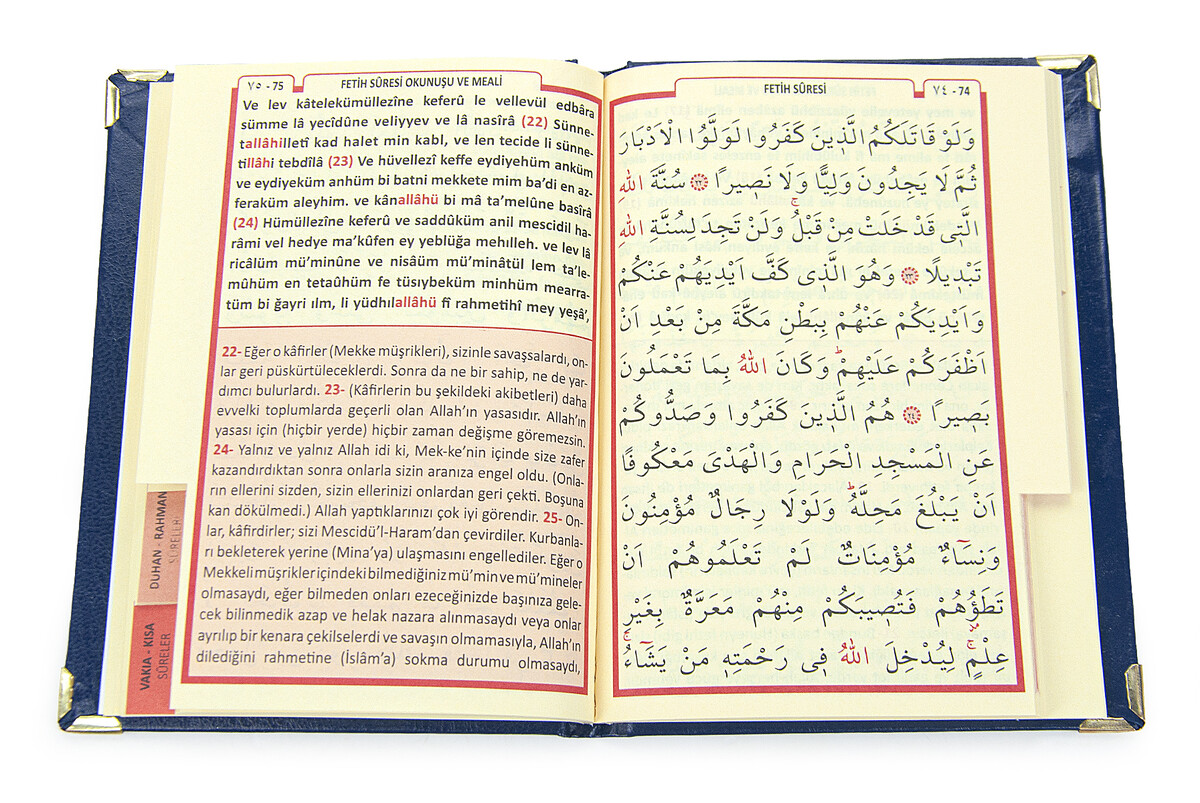 ٧٥ - 75
FETİH SÛRESİ OKUNUŞU VE MEALİ
Ve lev kâtelekümüllezîne keferû le vellevül edbâra
sümme lâ yecîdûne veliyyev ve lâ nasîrâ (22) Sünne-
tallâhilletî kad halet min kabl, ve len tecide li sünne-
tillâhi tebdîlâ (23) Ve hüvellezî keffe eydiyehüm anküm
ve eydiyeküm anhüm bi batni mekkete mim ba'di en az-
feraküm aleyhim. ve kânallâhü bi mâ ta'melûne basîrâ
(24) Hümüllezîne keferû ve saddûküm anil mescidil ha-
râmi vel hedye ma'kûfen ey yeblüğa mehılleh. ve lev lâ
ricâlüm mü'minûne ve nisâüm mü'minâtül lem ta'le-
mûhüm en tetaûhüm fe tüsıybeküm minhüm mearra-
tüm bi ğayri ılm, li yüdhılallâhü fî rahmetihî mey yeşâ',
22- Eğer o kâfirler (Mekke müşrikleri), sizinle savaşsalardı, on-
lar geri püskürtüleceklerdi. Sonra da ne bir sahip, ne de yar-
dımcı bulurlardı. 23- (Kâfirlerin bu şekildeki akibetleri) daha
evvelki toplumlarda geçerli olan Allah'ın yasasıdır. Allah'ın
yasası için (hiçbir yerde) hiçbir zaman değişme göremezsin.
24- Yalnız ve yalnız Allah idi ki, Mek-ke'nin içinde size zafer
kazandırdıktan sonra onlarla sizin aranıza engel oldu. (Onla-
rın ellerini sizden, sizin ellerinizi onlardan geri çekti. Boşuna
kan dökülmedi.) Allah yaptıklarınızı çok iyi görendir. 25- On-
lar, kâfirdirler; sizi Mescidü'l-Haram'dan çevirdiler. Kurbanla-
rı bekleterek yerine (Mina'ya) ulaşmasını engellediler. Eğer o
Mekkeli müşrikler içindeki bilmediğiniz mü'min ve mü'mineler
olmasaydı, eğer bilmeden onları ezeceğinizde başınıza gele-
cek bilinmedik azap ve helak nazara alınmasaydı veya onlar
ayrılıp bir kenara çekilselerdi ve savaşın olmamasıyla, Allah'ın
dilediğini rahmetine (İslâm'a) sokma durumu olmasaydı,
DUHAN - RAHMAN
SÛRELERİ
VAKIA - KISA
SÛRELER
FETİH SÛRESİ
٧٤ - 74
وَلَوْ قَاتَلَكُمُ الَّذٖينَ كَفَرُوا لَوَلَّوُا الْاَدْبَارَ
ثُمَّ لَا يَجِدُونَ وَلِيًّا وَلَا نَصٖيرًا ﴿٢٢﴾ سُنَّةَ اللّٰهِ
الَّتٖى قَدْ خَلَتْ مِنْ قَبْلُۚ وَلَنْ تَجِدَ لِسُنَّةِ اللّٰهِ
تَبْدٖيلًا ﴿٢٣﴾ وَهُوَ الَّذٖى كَفَّ اَيْدِيَهُمْ عَنْكُمْ
وَاَيْدِيَكُمْ عَنْهُمْ بِبَطْنِ مَكَّةَ مِنْ بَعْدِ اَنْ
اَظْفَرَكُمْ عَلَيْهِمْؕ وَكَانَ اللّٰهُ بِمَا تَعْمَلُونَ
بَصٖيرًا ﴿٢٤﴾ هُمُ الَّذٖينَ كَفَرُوا وَصَدُّوكُمْ
عَنِ الْمَسْجِدِ الْحَرَامِ وَالْهَدْىَ مَعْكُوفًا
اَنْ يَبْلُغَ مَحِلَّهُؕ وَلَوْلَا رِجَالٌ مُؤْمِنُونَ
وَنِسَٓاءٌ مُؤْمِنَاتٌ لَمْ تَعْلَمُوهُمْ اَنْ
تَطَؤُهُمْ فَتُصٖيبَكُمْ مِنْهُمْ مَعَرَّةٌ بِغَيْرِ
عِلْمٍۚ لِيُدْخِلَ اللّٰهُ فٖى رَحْمَتِهٖ مَنْ يَشَٓاءُۚ